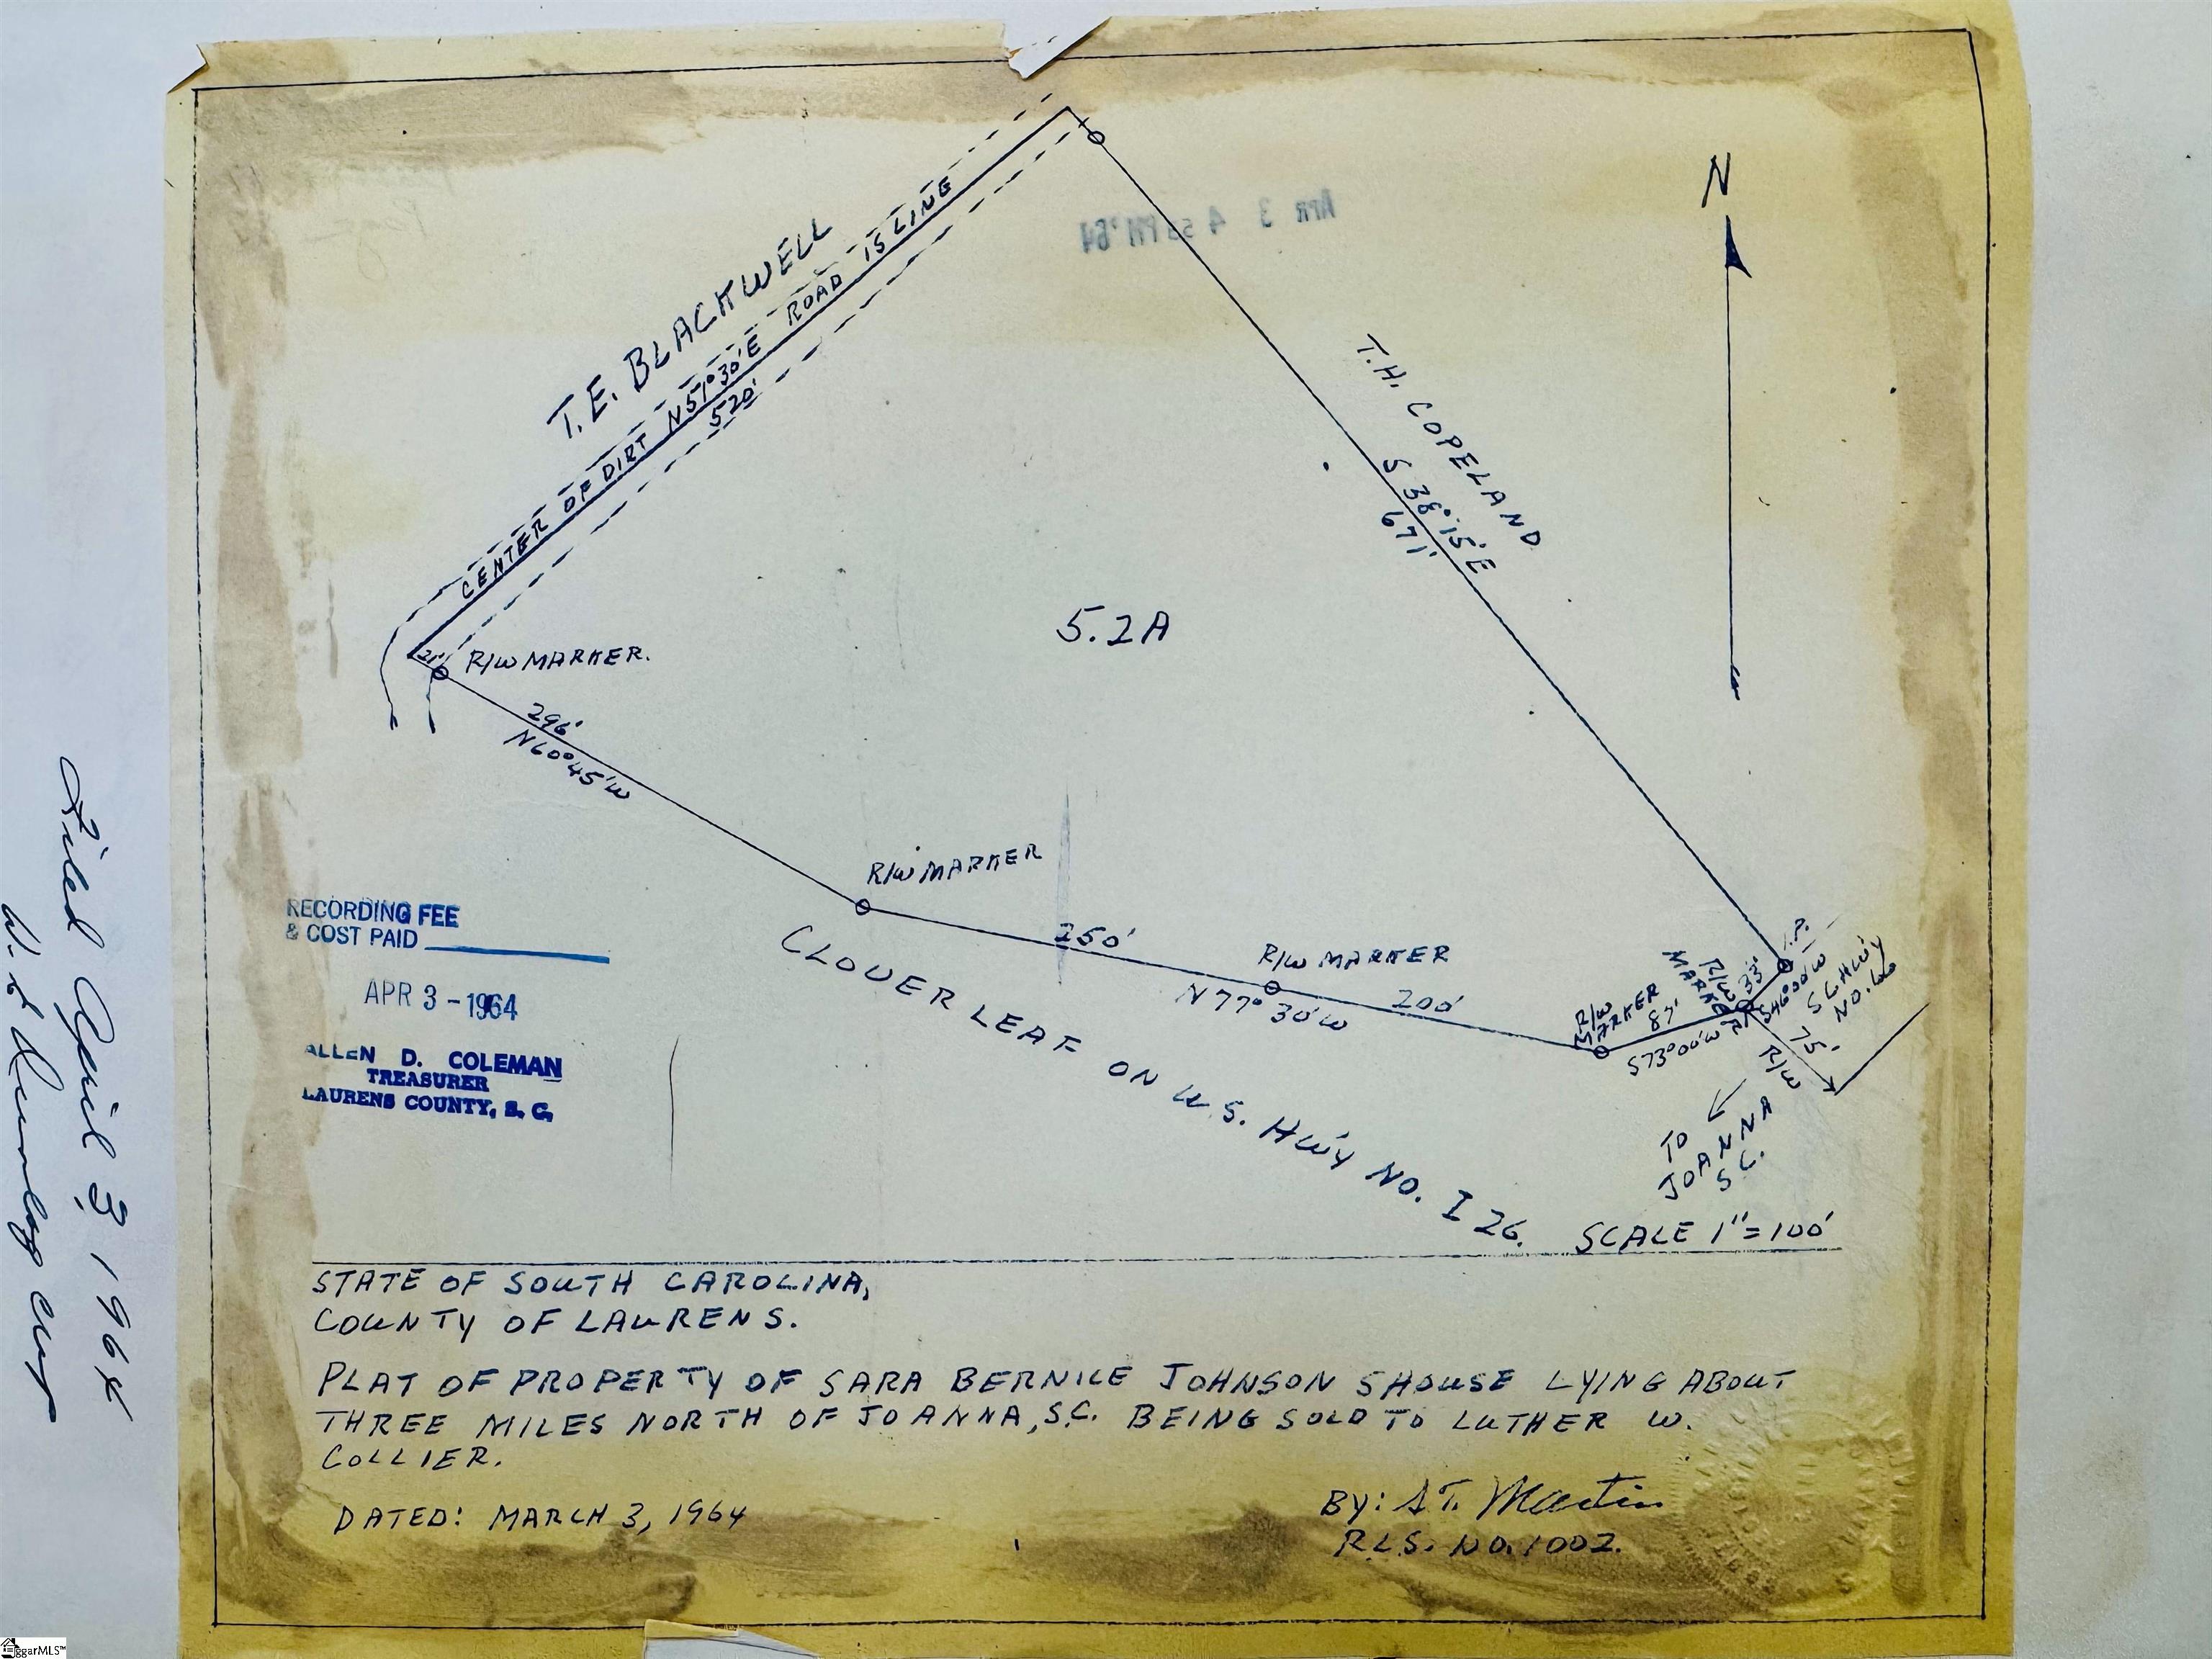 N
APR 3 4 53 PM '64
T.E. BLACKWELL
CENTER OF DIRT ROAD IS LINE
N51°30'E
520'
T.H. COPELAND
S 38°15'E
671'
5.2A
21'
R/W MARKER.
296'
N60°45'W
R/W MARKER
250'
R/W MARKER
N77°30'W
200'
R/W
MARKER
87'
S73°00'W
R/W
MARKER
33'
S46°00'W
I.P.
S.C. HWY
NO. 66
75'
R/W
TO
JOANNA
S.C.
CLOVER LEAF ON U.S. HWY NO. I 26.
SCALE 1"=100'
RECORDING FEE
& COST PAID
APR 3 - 1964
ALLEN D. COLEMAN
TREASURER
LAURENS COUNTY, S. C.
Filed April 3 1964
STATE OF SOUTH CAROLINA,
COUNTY OF LAURENS.
PLAT OF PROPERTY OF SARA BERNICE JOHNSON SHOUSE LYING ABOUT
THREE MILES NORTH OF JOANNA, S.C. BEING SOLD TO LUTHER W.
COLLIER.
DATED: MARCH 3, 1964
BY: S.T. Martin
R.L.S. NO. 1002.
ggarMLS™